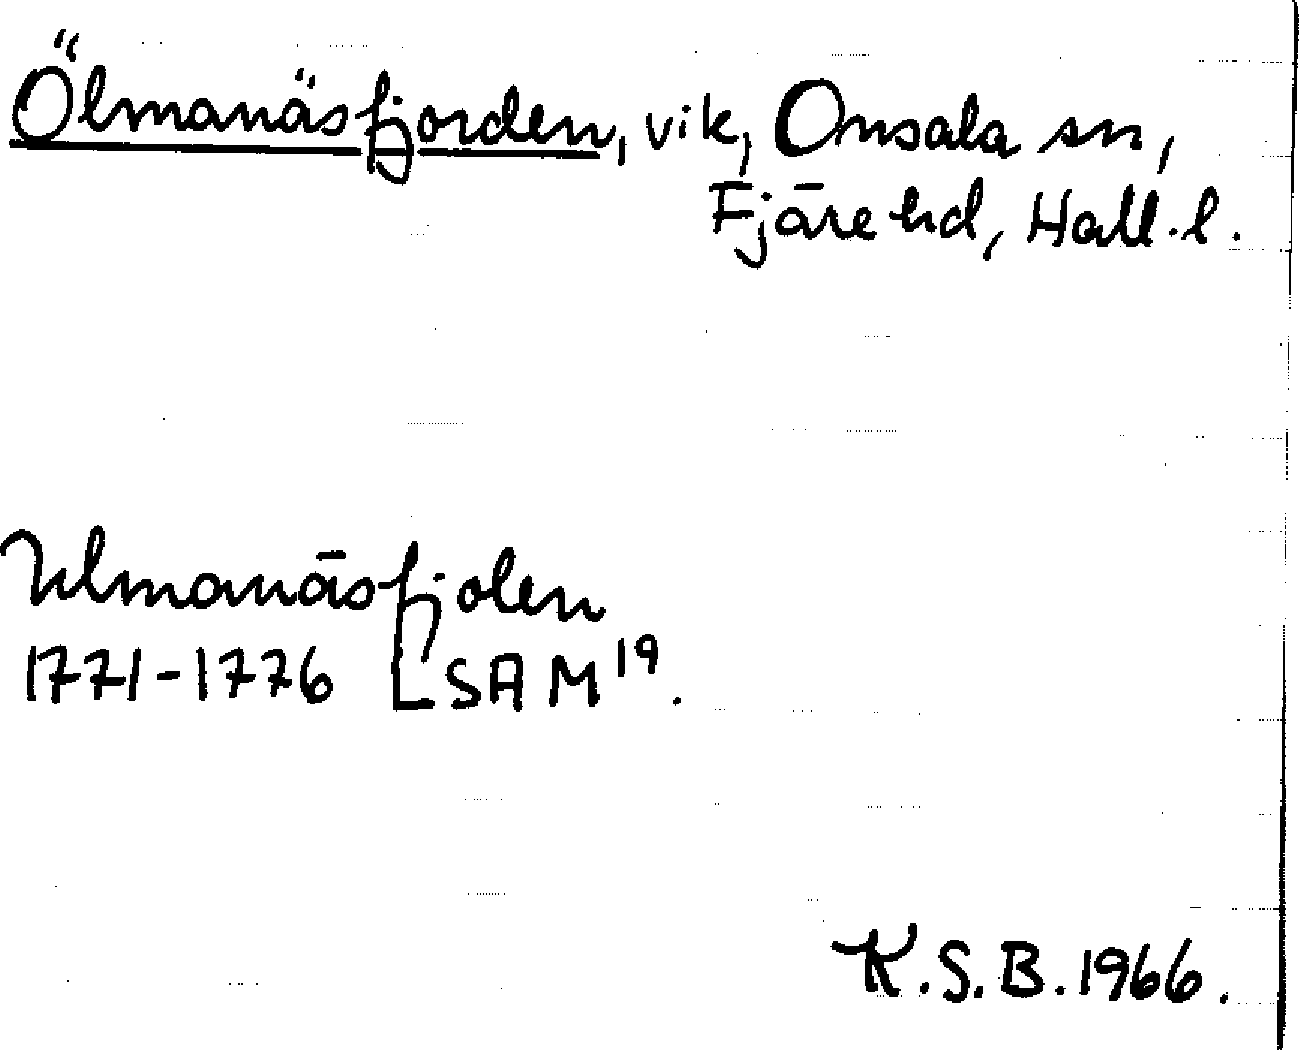 Ölmanäsfjorden, vik, Onsala sn,
Fjäre hd, Hall. l.
Ulmanäsfjolen
1771-1776 LSA M19.
K.S.B. 1966.